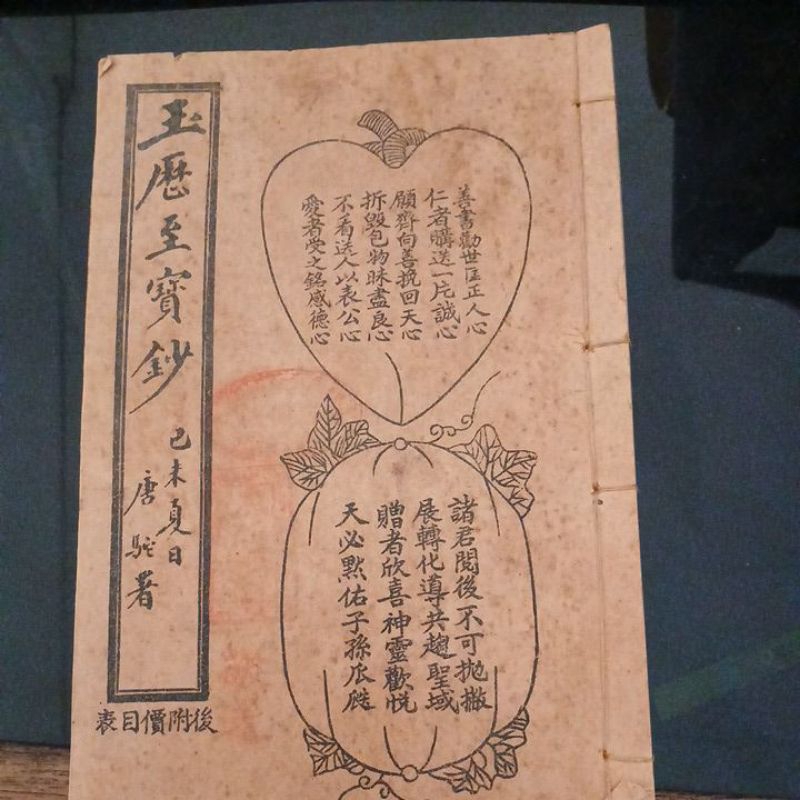 玉曆至寶鈔
己未夏日
唐駝署
後附價目表
善書勸世匡正人心
仁者購送一片誠心
願齊向善挽回天心
拆毀包物昧盡良心
不看送人以表公心
愛者受之銘感德心
諸君閱後不可拋撇
展轉化導共趨聖域
贈者欣喜神靈歡悅
天必默佑子孫瓜瓞